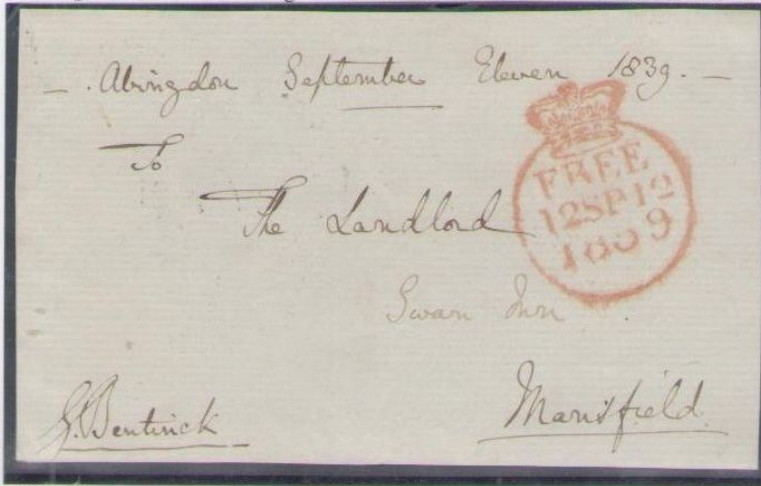 — . Abingdon September Eleven 1839. —
To
The Landlord
Swan Inn .
Mansfield
G. Bentinck
FREE
12SP12
1839